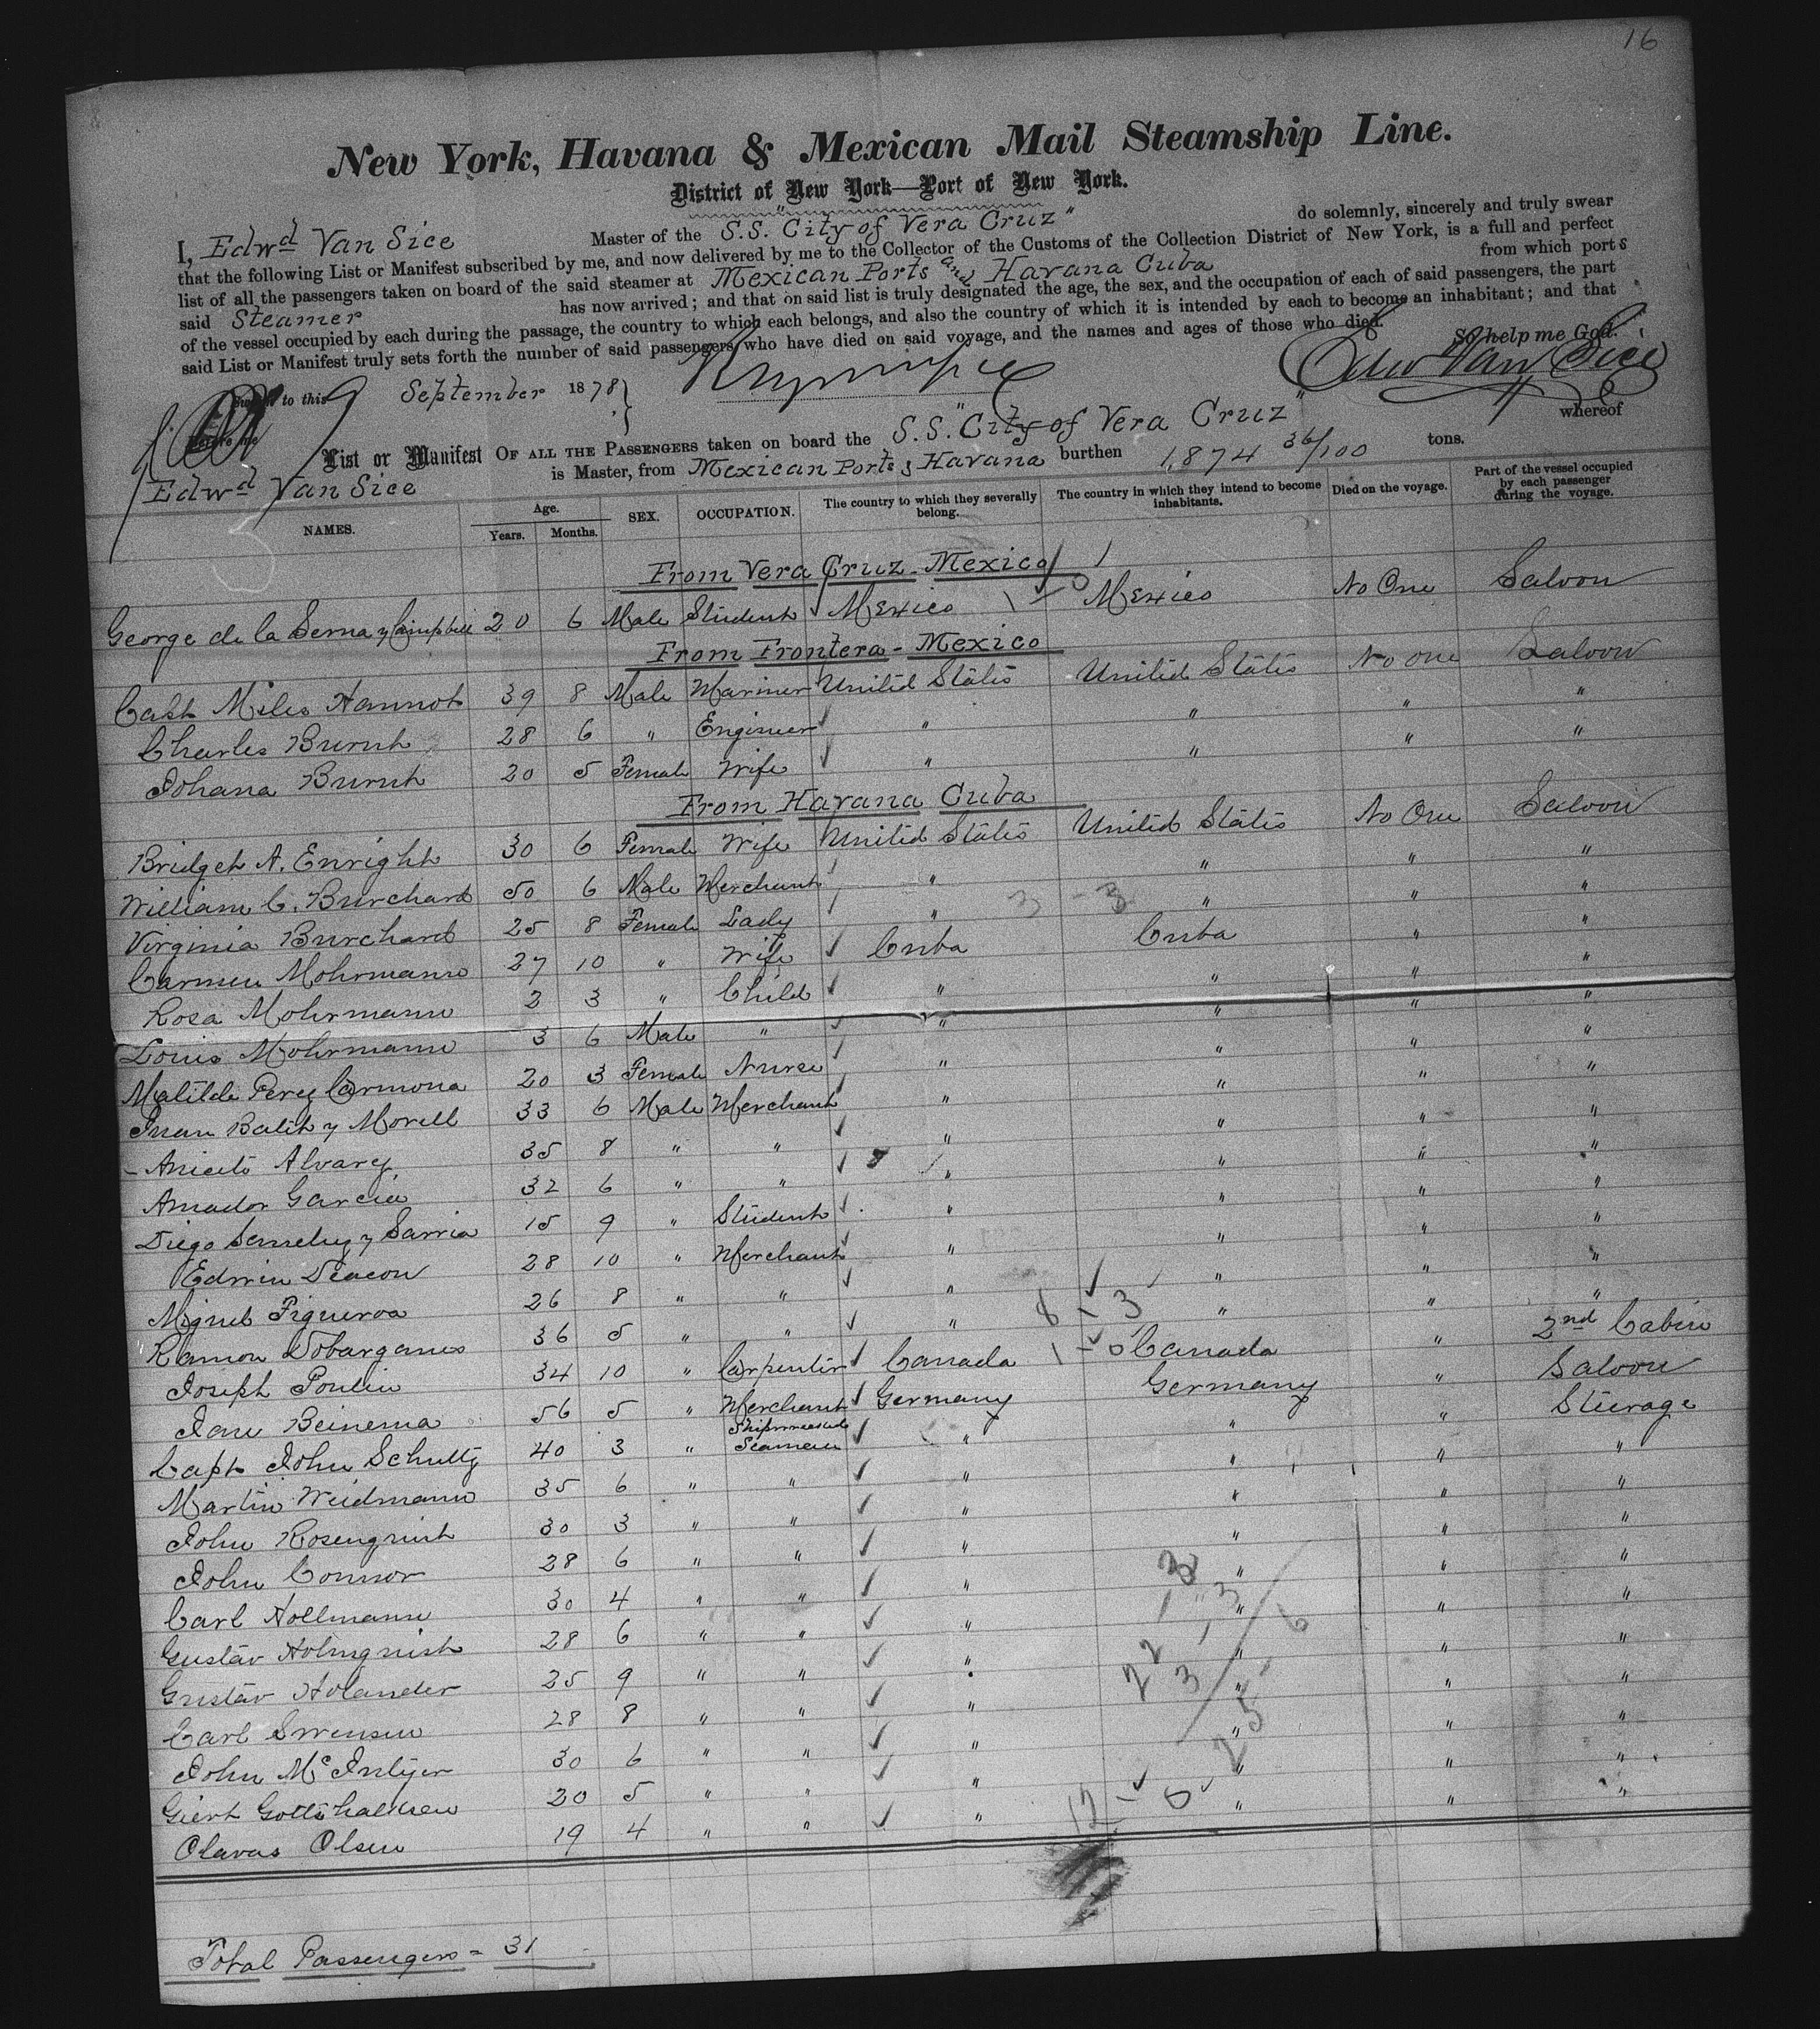 16
New York, Havana & Mexican Mail Steamship Line.
District of New York—Port of New York.
I, Edwd Van Sice Master of the S.S. "City of Vera Cruz" do solemnly, sincerely and truly swear
that the following List or Manifest subscribed by me, and now delivered by me to the Collector of the Customs of the Collection District of New York, is a full and perfect
list of all the passengers taken on board of the said steamer at Mexican Ports and Havana Cuba from which ports
said Steamer has now arrived; and that on said list is truly designated the age, the sex, and the occupation of each of said passengers, the part
of the vessel occupied by each during the passage, the country to which each belongs, and also the country of which it is intended by each to become an inhabitant; and that
said List or Manifest truly sets forth the number of said passengers who have died on said voyage, and the names and ages of those who died.
So help me God.
Edw Van Sice
Sworn to this 9 September 1878
before me
List or Manifest OF ALL THE PASSENGERS taken on board the S.S. "City of Vera Cruz" whereof
Edwd Van Sice is Master, from Mexican Ports & Havana burthen 1,874 36/100 tons.
NAMES. Age. Years. Months. SEX. OCCUPATION. The country to which they severally belong. The country in which they intend to become inhabitants. Died on the voyage. Part of the vessel occupied by each passenger during the voyage.
From Vera Cruz - Mexico
George de la Serna y Campbell 20 6 Male Student Mexico Mexico No One Saloon
From Frontera - Mexico
Capt Miles Hannot 39 8 Male Mariner United States United States No one Saloon
Charles Burnt 28 6 " Engineer " " " "
Johana Burnt 20 5 Female Wife " " " "
From Havana Cuba
Bridget A. Enright 30 6 Female Wife United States United States No One Saloon
William C. Burchard 50 6 Male Merchant " " " "
Virginia Burchard 25 8 Female Lady " " " "
Carmen Mohrmann 27 10 " Wife Cuba Cuba " "
Rosa Mohrmann 2 3 " Child " " " "
Louis Mohrmann 3 6 Male " " " " "
Matilde Perez Carmona 20 3 Female Nurse " " " "
Juan Balit y Morell 33 6 Male Merchant " " " "
Aniceto Alvarez 35 8 " " " " " "
Amador Garcia 32 6 " " " " " "
Diego y Sarria 15 9 " Student " " " "
Edwin Deacon 28 10 " Merchant " " " "
Miguel Figueroa 26 8 " " " " " "
Ramon Dobarganes 36 5 " " " " " "
Joseph Poulin 34 10 " Carpenter Canada Canada " 2nd Cabin
Jan Beinema 56 5 " Merchant Germany Germany " Saloon
Capt John Schultz 40 3 " Shipwrecked Seamen " " " Steerage
Martin Weidmann 35 6 " " " " " "
John Rosenquist 30 3 " " " " " "
John Connor 28 6 " " " " " "
Carl Hollmann 30 4 " " " " " "
Gustav Holmquist 28 6 " " " " " "
Gustav Holander 25 9 " " " " " "
Carl Swensen 28 8 " " " " " "
John McIntyer 30 6 " " " " " "
Giert Gottshalksen 20 5 " " " " " "
Olavas Olsen 19 4 " " " " " "
Total Passengers = 31